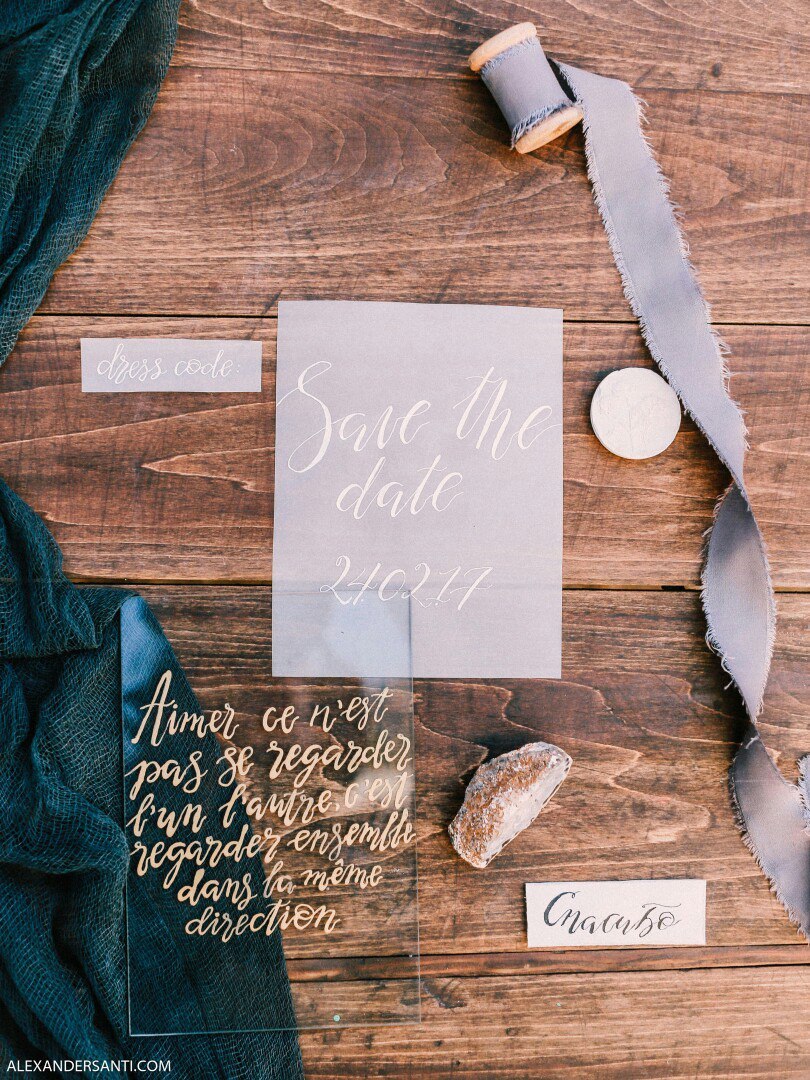 dress code:
Save the
date
240217
Aimer ce n'est
pas se regarder
l'un l'autre, c'est
regarder ensemble
dans la même
direction
Спасибо
ALEXANDERSANTI.COM